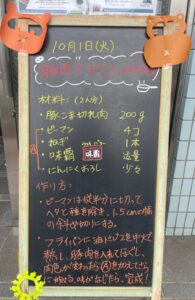 10月1日(火)
材料:(2人分)
・豚こま切れ肉 200g
・ピーマン 4コ
・ねぎ 1本
・味覇 適量
味覇
・にんにくおろし 少々
作り方:
・ピーマンは縦半分に切って
ヘタと種を除き、1.5cm幅
の斜め切りにする。
・フライパンに油大さじ2を中火で
熱し、豚肉を入れてほぐし、
肉色が変わったらⒶを加えてさら
に炒め、味がなじんだら、完成!